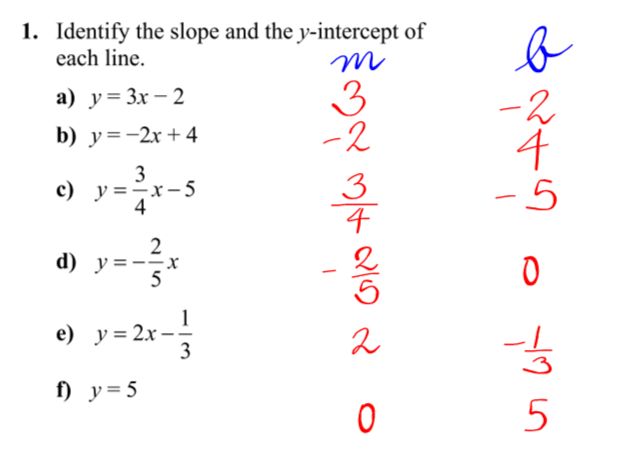 1. Identify the slope and the y-intercept of
each line.
m b
a) y = 3x − 2 3 -2
b) y = −2x + 4 -2 4
c) y = 3/4 x − 5 3/4 -5
d) y = −2/5 x -2/5 0
e) y = 2x − 1/3 2 -1/3
f) y = 5 0 5